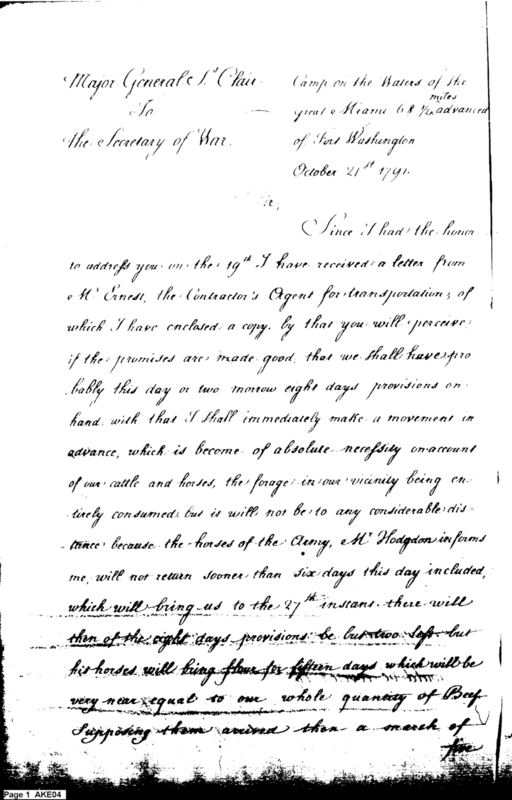 Major General St Clair
To
the Secretary of War.
Camp on the Waters of the
great Miami 68 1/2 miles advanced
of Fort Washington
October 21st 1791.
Sir,
Since I had the honor
to address you on the 19th I have received a letter from
Mr Ernest, the Contractor's Agent for transportation, of
which I have enclosed a copy. by that you will perceive
if the promises are made good, that we shall have pro
bably this day or two morrow eight days provisions on
hand. with that I shall immediately make a movement in
advance, which is become of absolute necessity on account
of our cattle and horses, the forage in our vicinity being en-
tirely consumed but is will not be to any considerable dis-
tance because the horses of the Army, Mr Hodgdon informs
me, will not return sooner than six days this day included,
which will bring us to the 27th instant. there will
then of the eight days provisions be but two left but
his horses will bring flour for fifteen days which will be
very near equal to our whole quantity of Beef
Supposing them arrived then a march of
five
Page 1 AKE04